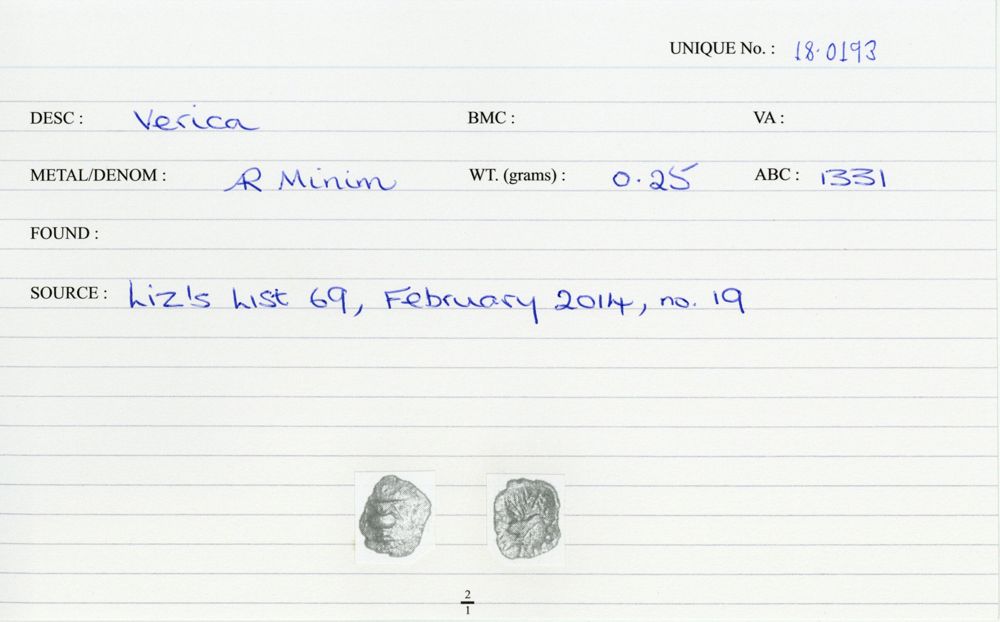 UNIQUE No. : 18·0193
DESC : Verica BMC : VA :
METAL/DENOM : AR Minim WT. (grams) : 0·25 ABC : 1331
FOUND :
SOURCE : Liz's List 69, February 2014, no. 19
2
1